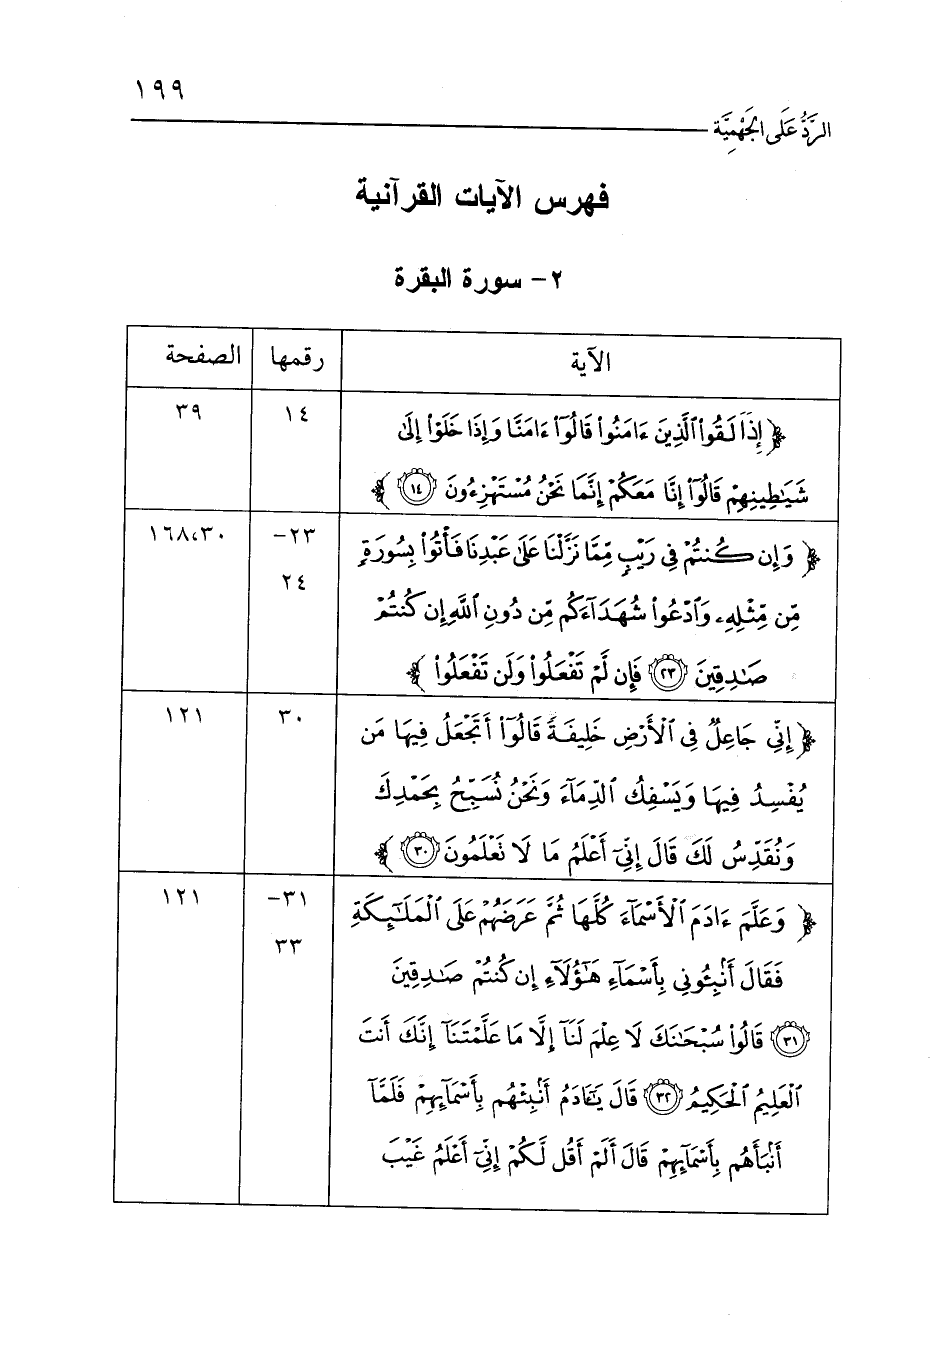 ١٩٩
الرَّدُّ عَلَى الجَهْمِيَّة
فهرس الآيات القرآنية
٢- سورة البقرة
الآية رقمها الصفحة
﴿ إِذَا لَقُوا۟ ٱلَّذِينَ ءَامَنُوا۟ قَالُوٓا۟ ءَامَنَّا وَإِذَا خَلَوْا۟ إِلَىٰ ١٤ ٣٩
شَيَٰطِينِهِمْ قَالُوٓا۟ إِنَّا مَعَكُمْ إِنَّمَا نَحْنُ مُسْتَهْزِءُونَ ١٤ ﴾
﴿ وَإِن كُنتُمْ فِى رَيْبٍ مِّمَّا نَزَّلْنَا عَلَىٰ عَبْدِنَا فَأْتُوا۟ بِسُورَةٍ ٢٣- ١٦٨،٣٠
مِّن مِّثْلِهِۦ وَٱدْعُوا۟ شُهَدَآءَكُم مِّن دُونِ ٱللَّهِ إِن كُنتُمْ ٢٤
صَٰدِقِينَ ٢٣ فَإِن لَّمْ تَفْعَلُوا۟ وَلَن تَفْعَلُوا۟ ﴾
﴿ إِنِّى جَاعِلٌ فِى ٱلْأَرْضِ خَلِيفَةً قَالُوٓا۟ أَتَجْعَلُ فِيهَا مَن ٣٠ ١٢١
يُفْسِدُ فِيهَا وَيَسْفِكُ ٱلدِّمَآءَ وَنَحْنُ نُسَبِّحُ بِحَمْدِكَ
وَنُقَدِّسُ لَكَ قَالَ إِنِّىٓ أَعْلَمُ مَا لَا تَعْلَمُونَ ٣٠ ﴾
﴿ وَعَلَّمَ ءَادَمَ ٱلْأَسْمَآءَ كُلَّهَا ثُمَّ عَرَضَهُمْ عَلَى ٱلْمَلَٰٓئِكَةِ ٣١- ١٢١
فَقَالَ أَنۢبِـُٔونِى بِأَسْمَآءِ هَٰٓؤُلَآءِ إِن كُنتُمْ صَٰدِقِينَ ٣٣
٣١ قَالُوا۟ سُبْحَٰنَكَ لَا عِلْمَ لَنَآ إِلَّا مَا عَلَّمْتَنَآ إِنَّكَ أَنتَ
ٱلْعَلِيمُ ٱلْحَكِيمُ ٣٢ قَالَ يَٰٓـَٔادَمُ أَنۢبِئْهُم بِأَسْمَآئِهِمْ فَلَمَّآ
أَنۢبَأَهُم بِأَسْمَآئِهِمْ قَالَ أَلَمْ أَقُل لَّكُمْ إِنِّىٓ أَعْلَمُ غَيْبَ